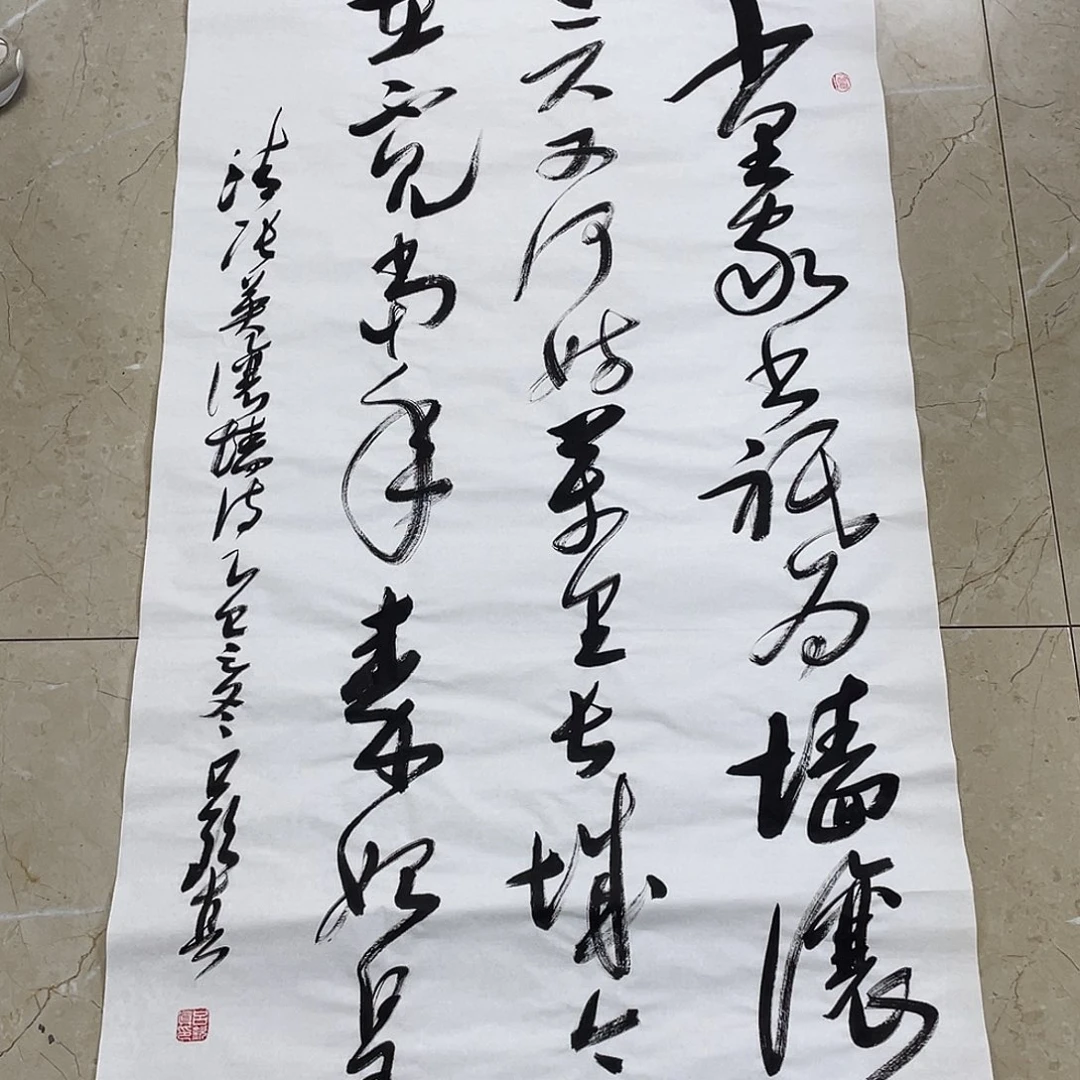 千里家书祗为墙讓
三尺又何妨萬里长城今
在不见当年秦始皇
清张英讓墙诗乙巳之冬吕真